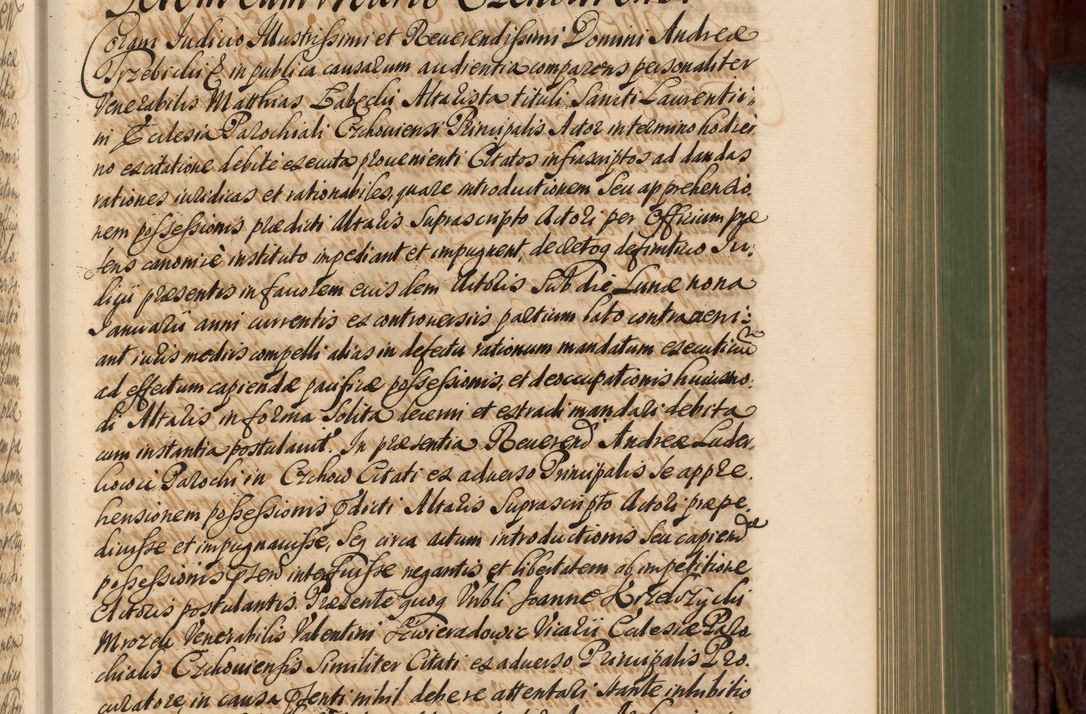 Coram Judicio Illustrissimi et Reuerendissimi Domini Andreæ
Trzebicki E. in publica causarum audientia comparens personaliter
Venerabilis Matthias Zabecki Altarista tituli Sancti Laurentii
in Ecclesia Parochiali Czchouiensi Principalis Actor in termino hodier
no ex citatione debite executa prouenienti Citatos infrascriptos ad dandas
rationes iuridicas et rationabiles, quare introductionem seu apprehensio
nem possessionis prædicti Altaris Suprascripto Actori per Officium præ
sens canonicè instituto impediant et impugnent, decretoq definitiuo Ju,
dicii præsentis in fauorem eiusdem Actoris Sub die Lunæ nona
Januarii anni currentis ex controuersiis partium lato contraueni:
ant iuris mediis compelli alias in defectu rationum mandatum executiuū
ad effectum capiendæ pacificæ possessionis, et deoccupationis huiusmo.
di Altaris in forma Solita decerni et extradi mandari debita
cum instantia postulauit. In præsentia Reuerend Andreæ
Parochi in Czchow Citati ex aduerso Principalis se appre.
hensionem possessionis pdicti Altaris Suprascripto Actori præpe.
diuisse et impugnauisse, Seq circa actum introductionis Seu capiendæ
possessionis interfuisse negantis et libertatem ab impetitione
Actoris postulantis. Præsente quoq Joanne
Venerabilis Valentini Vicarii Ecclesiæ Paro
chialis Czchouiensis Similiter Citati ex aduerso Principalis Pro.
curatore in causa psenti nihil debere attentari stante inhibitio